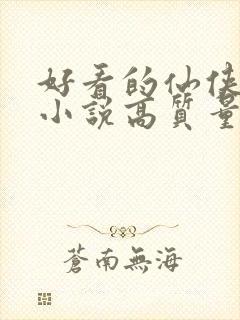 好看的仙侠
小說高質量
蒼南無海